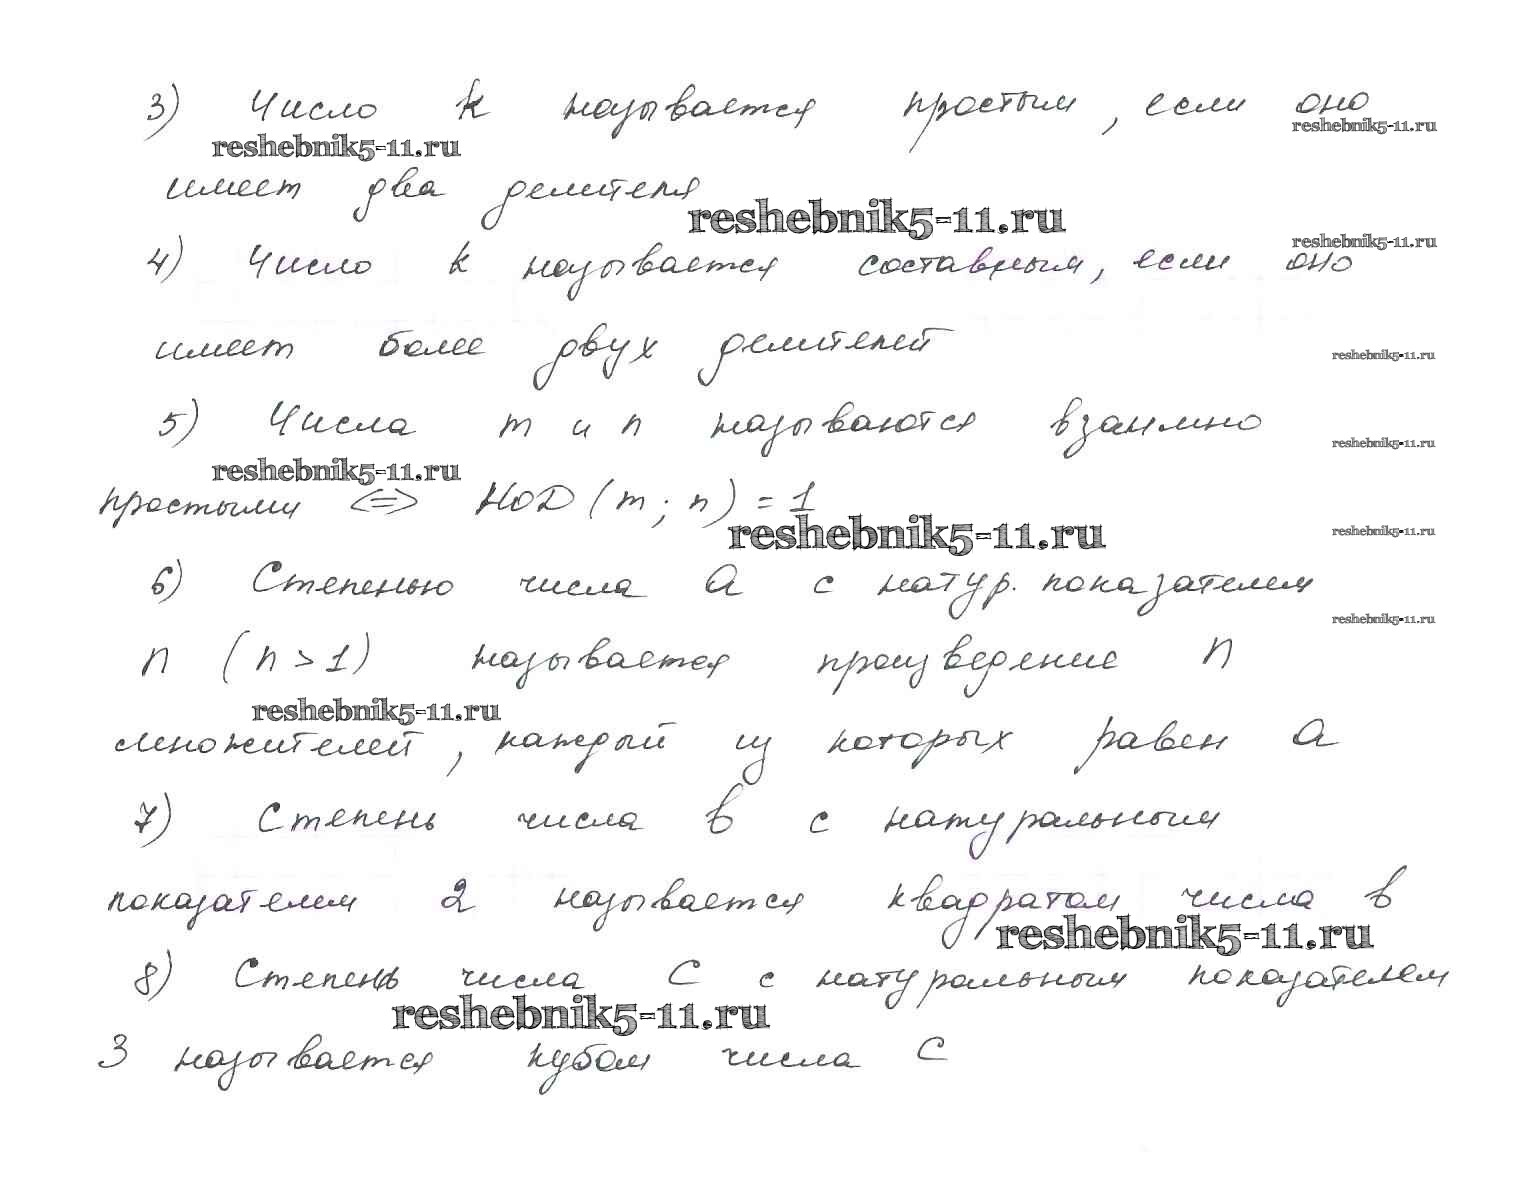 3) Число k называется простым, если оно
reshebnik5-11.ru
reshebnik5-11.ru
имеет два делителя
reshebnik5-11.ru
4) Число k называется составным, если оно
reshebnik5-11.ru
имеет более двух делителей
reshebnik5-11.ru
5) Числа m и n называются взаимно
reshebnik5-11.ru
reshebnik5-11.ru
простыми <=> НОД (m; n) = 1
reshebnik5-11.ru
reshebnik5-11.ru
6) Степенью числа a с натур. показателем
reshebnik5-11.ru
n (n > 1) называется произведение n
reshebnik5-11.ru
множителей, каждый из которых равен a
7) Степень числа b с натуральным
показателем 2 называется квадратом числа b
reshebnik5-11.ru
8) Степень числа c с натуральным показателем
reshebnik5-11.ru
3 называется кубом числа c